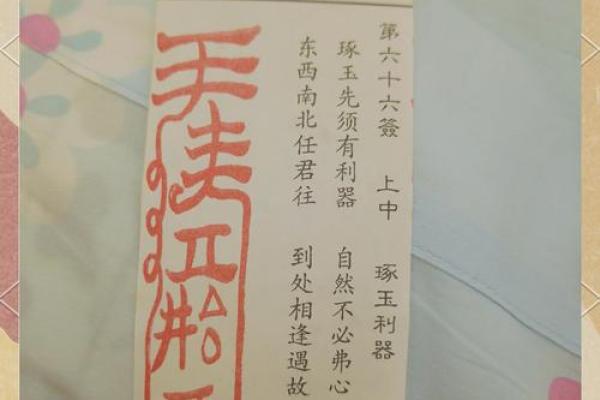 第六十六簽 上中 琢玉利器
琢玉先须有利器 自然不必弗心
东西南北任君往 到处相逢遇故